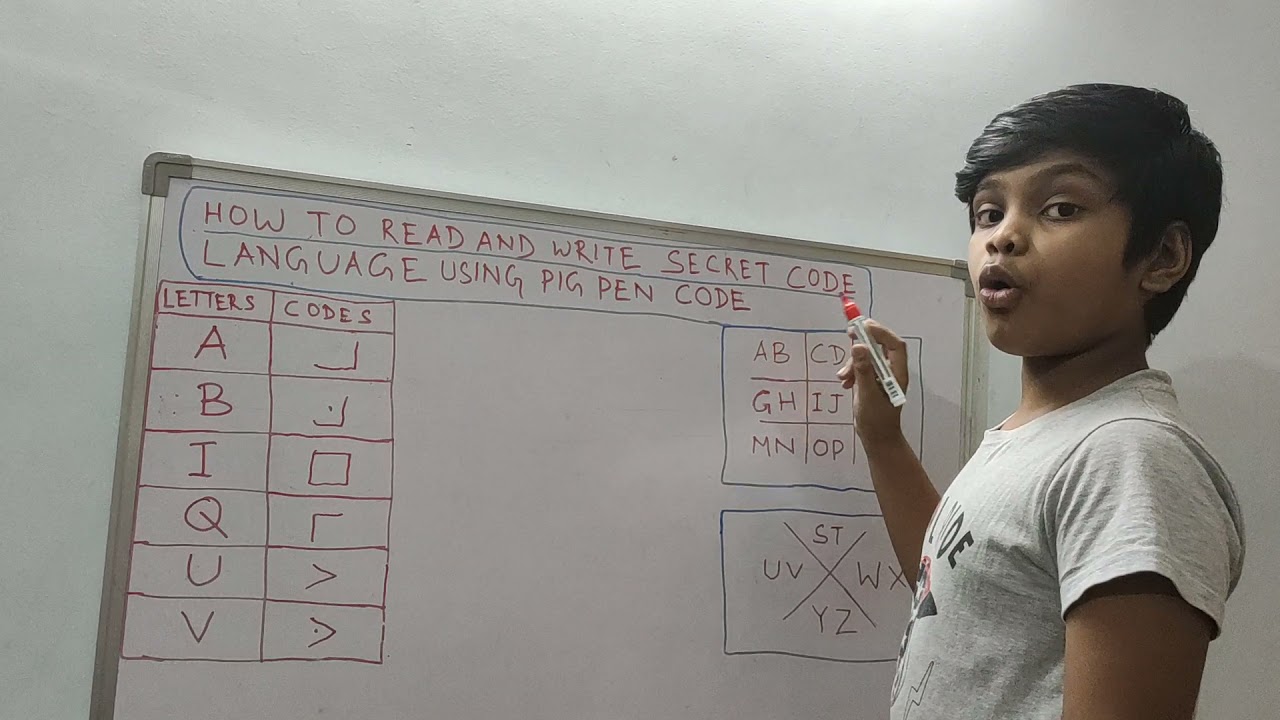 HOW TO READ AND WRITE SECRET CODE
LANGUAGE USING PIG PEN CODE
LETTERS CODES
A
B
I
Q
U
V
AB CD
GH IJ
MN OP
ST
UV WX
YZ